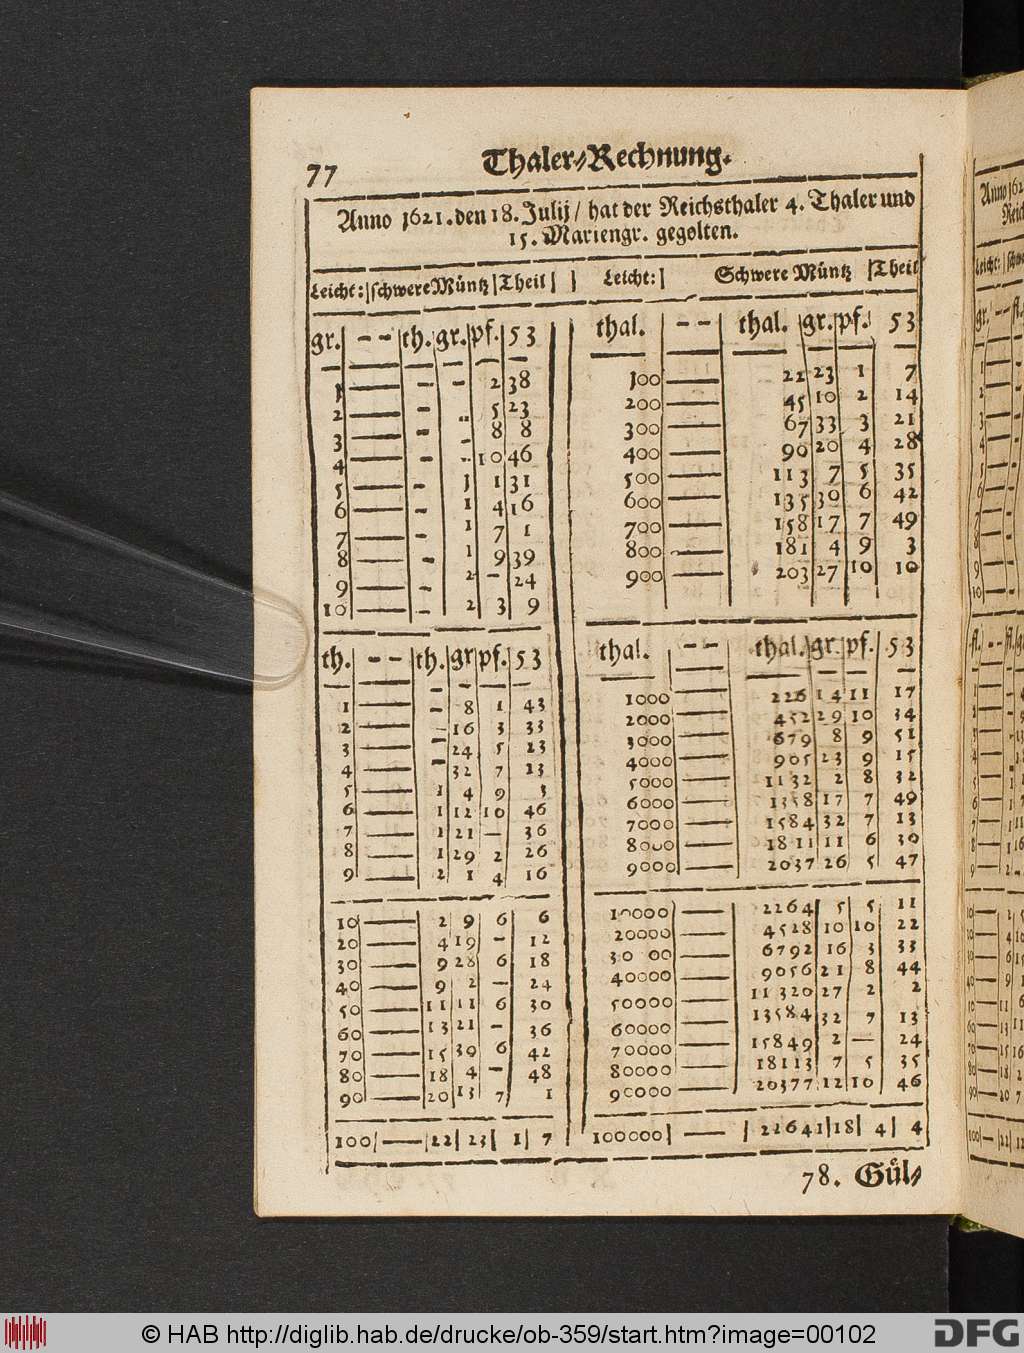 77 Thaler⸗Rechnung.
Anno 1621. den 18. Julij / hat der Reichsthaler 4. Thaler und
15. Mariengr. gegolten.
Leicht: | schwere Müntz | Theil |
gr. | - - | th. | gr. | pf. | 53
1 — - - 2 38
2 — - „ 5 23
3 — - - 8 8
4 — - - 10 46
5 — - 1 1 31
6 — - 1 4 16
7 — - 1 7 1
8 — - 1 9 39
9 — - 2 - 24
10 — - 2 3 9
th. | - - | th. | gr | pf. | 53
1 — - 8 1 43
2 — - 16 3 33
3 — - 24 5 23
4 — - 32 7 13
5 — 1 4 9 3
6 — 1 12 10 46
7 — 1 21 — 36
8 — 1 29 2 26
9 — 2 1 4 16
10 — 2 9 6 6
20 — 4 19 - 12
30 — 9 28 6 18
40 — 9 2 — 24
50 — 11 11 6 30
60 — 13 21 - 36
70 — 15 30 6 42
80 — 18 4 - 48
90 — 20 13 7 1
100 | — | 22 | 23 | 1 | 7
Leicht: | Schwere Müntz | Theil
thal. | - - | thal. | gr. | pf. | 53
100 — 22 23 1 7
200 — 45 10 2 14
300 — 67 33 3 21
400 — 90 20 4 28
500 — 113 7 5 35
600 — 135 30 6 42
700 — 158 17 7 49
800 — 181 4 9 3
900 — 203 27 10 10
thal. | - - | thal. | gr. | pf. | 53
1000 — 226 14 11 17
2000 — 452 29 10 34
3000 — 679 8 9 51
4000 — 905 23 9 15
5000 — 1132 2 8 32
6000 — 1358 17 7 49
7000 — 1584 32 7 13
8000 — 1811 11 6 30
9000 — 2037 26 5 47
10000 — 2264 5 5 11
20000 — 4528 10 10 22
30 00 — 6792 16 3 33
40000 — 9056 21 8 44
50000 — 11320 27 2 2
60000 — 13584 32 7 13
70000 — 15849 2 — 24
80000 — 18113 7 5 35
90000 — 20377 12 10 46
100000 | — | 22641 | 18 | 4 | 4
78. Gül⸗
© HAB http://diglib.hab.de/drucke/ob-359/start.htm?image=00102
DFG